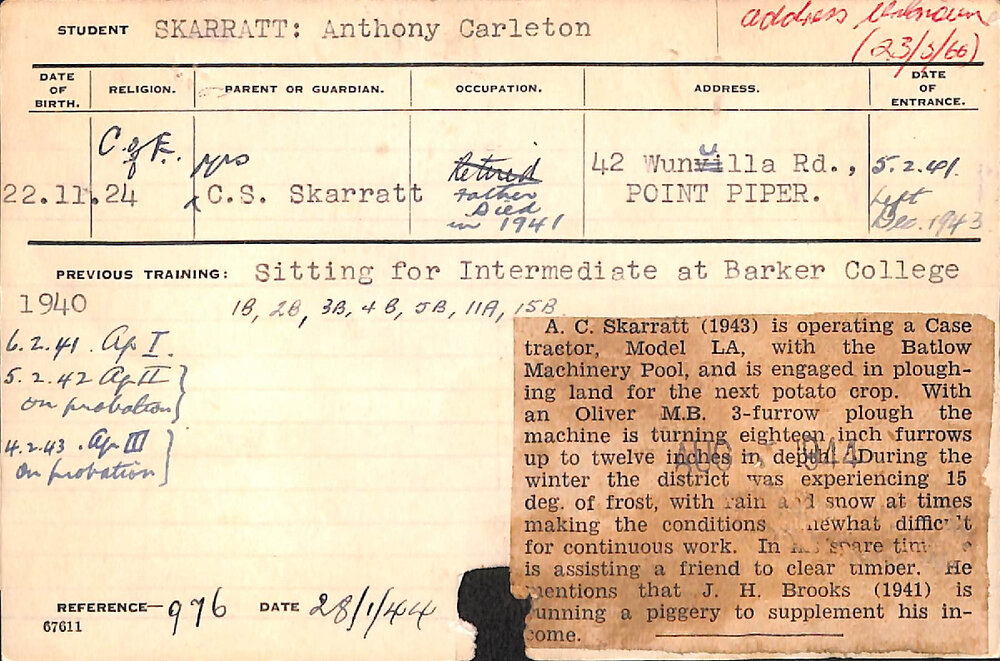 address unknown
(23/5/66)
STUDENT SKARRATT: Anthony Carleton
DATE OF BIRTH. RELIGION. PARENT OR GUARDIAN. OCCUPATION. ADDRESS. DATE OF ENTRANCE.
C of E. Mrs Retired 42 Wunulla Rd., 5.2.41.
22.11.24 C.S. Skarratt Father Died in 1941 POINT PIPER. Left Dec. 1943
PREVIOUS TRAINING: Sitting for Intermediate at Barker College
1940 1B, 2B, 3B, 4B, 5B, 11A, 15B
6.2.41. Ag I.
5.2.42 Ag II
on probation
4.2.43. Ag III
On probation
REFERENCE— 976 DATE 28/1/44
67611
A. C. Skarratt (1943) is operating a Case
tractor, Model LA, with the Batlow
Machinery Pool, and is engaged in plough-
ing land for the next potato crop. With
an Oliver M.B. 3-furrow plough the
machine is turning eighteen inch furrows
up to twelve inches in depth. During the
winter the district was experiencing 15
deg. of frost, with rain and snow at times
making the conditions
for continuous work. In spare
is assisting a friend to clear timber. He
mentions that J. H. Brooks (1941) is
running a piggery to supplement his in-
come.
AUG 1944